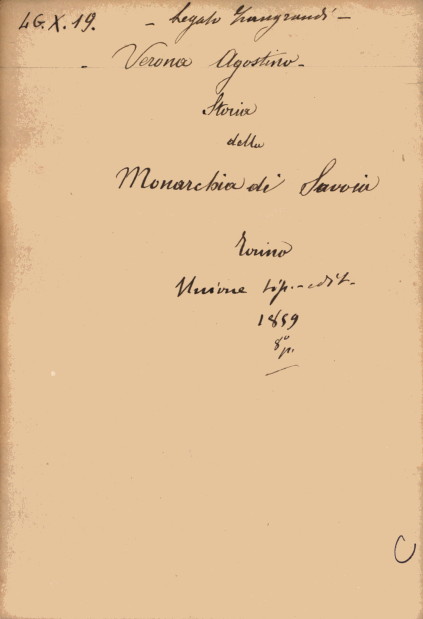 LG.X.19. - Legato Zangrandi -
- Verona Agostino -
Storia
della
Monarchia di Savoia
Torino
Unione tip.-edit.
1859
8° p.
C